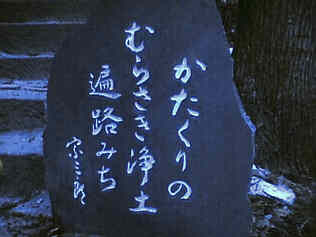 かたくりの
むらさき浄土
遍路みち
宗三郎